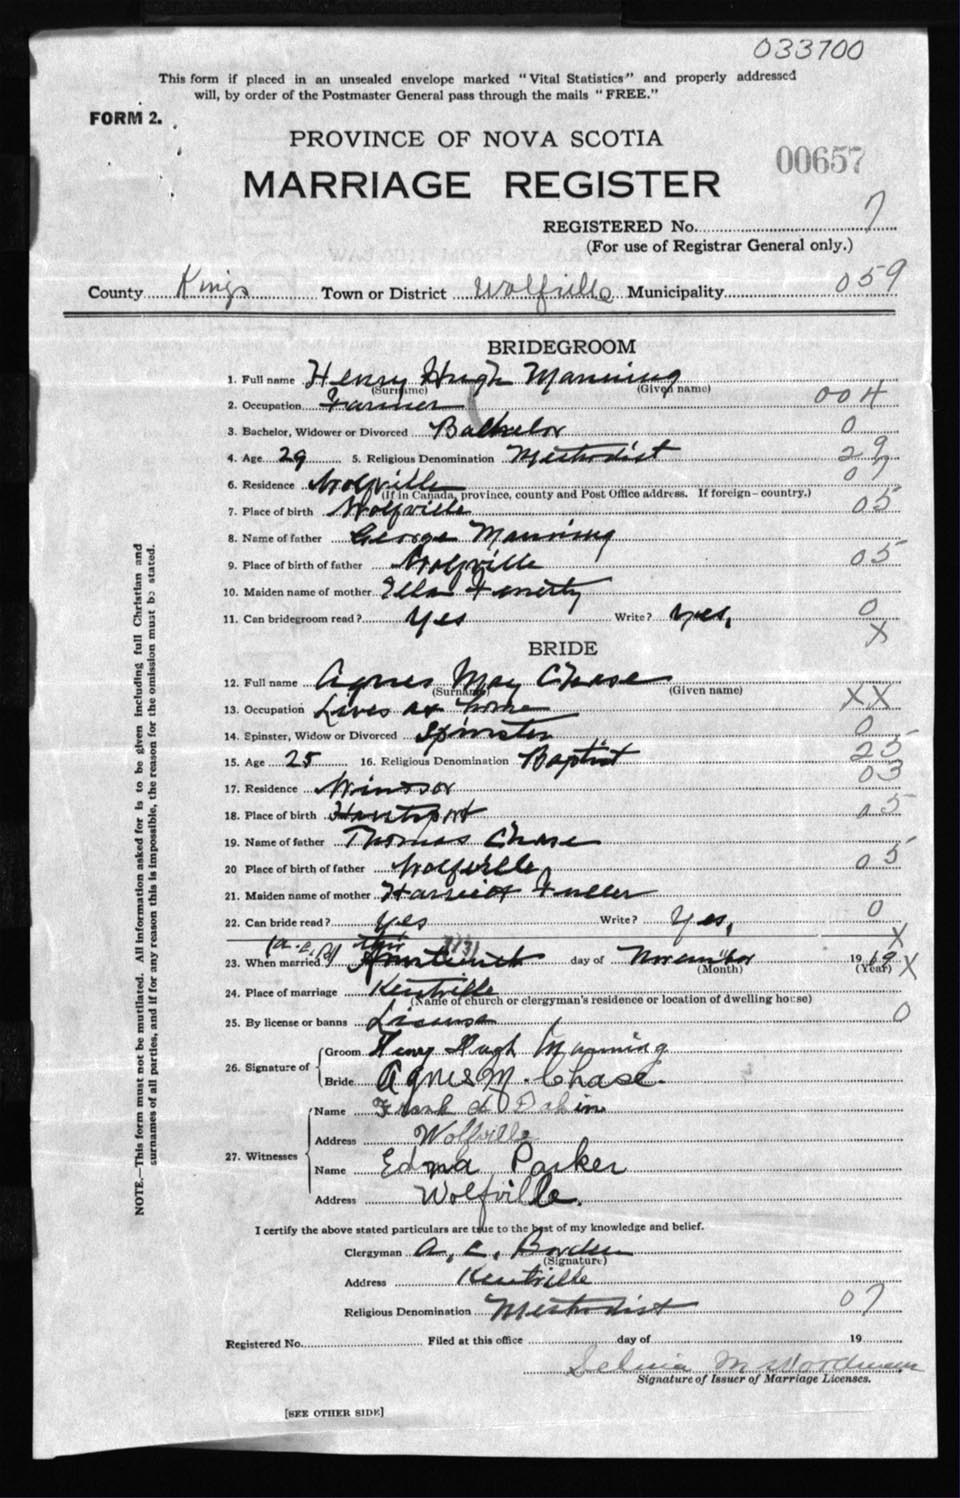 033700
This form if placed in an unsealed envelope marked "Vital Statistics" and properly addressed
will, by order of the Postmaster General pass through the mails "FREE."
FORM 2.
PROVINCE OF NOVA SCOTIA
00657
MARRIAGE REGISTER
REGISTERED No. 7
(For use of Registrar General only.)
County Kings Town or District Wolfville Municipality 059
BRIDEGROOM
1. Full name Henry Hugh Manning
(Surname) (Given name)
2. Occupation Farmer 004
3. Bachelor, Widower or Divorced Bachelor 0
4. Age 29 5. Religious Denomination Methodist 29
6. Residence Wolfville 07
(If in Canada, province, county and Post Office address. If foreign-country.)
7. Place of birth Wolfville 05
8. Name of father George Manning
9. Place of birth of father Wolfville 05
10. Maiden name of mother Ella
11. Can bridegroom read? Yes Write? Yes, 0
X
BRIDE
12. Full name Agnes May Chase
(Surname) (Given name)
13. Occupation Lives at home XX
14. Spinster, Widow or Divorced Spinster 0
15. Age 25 16. Religious Denomination Baptist 25
17. Residence Windsor 03
18. Place of birth Hantsport 05
19. Name of father Thomas Chase
20 Place of birth of father Wolfville 05
21. Maiden name of mother Harriet Fuller
22. Can bride read? Yes Write? Yes, 0
X
23. When married day of November 1919 X
(Month) (Year)
24. Place of marriage Kentville
(Name of church or clergyman's residence or location of dwelling house)
25. By license or banns License 0
26. Signature of
Groom Henry Hugh Manning
Bride Agnes M. Chase.
27. Witnesses
Name Frank
Address Wolfville
Name Edna Parker
Address Wolfville.
I certify the above stated particulars are true to the best of my knowledge and belief.
Clergyman A. E. Borden
(Signature)
Address Kentville
Religious Denomination Methodist 07
Registered No. Filed at this office day of 19
M Woodman
Signature of Issuer of Marriage Licenses.
[SEE OTHER SIDE]
NOTE.—This form must not be mutilated. All information asked for is to be given including full Christian and
surnames of all parties, and if for any reason this is impossible, the reason for the omission must be stated.